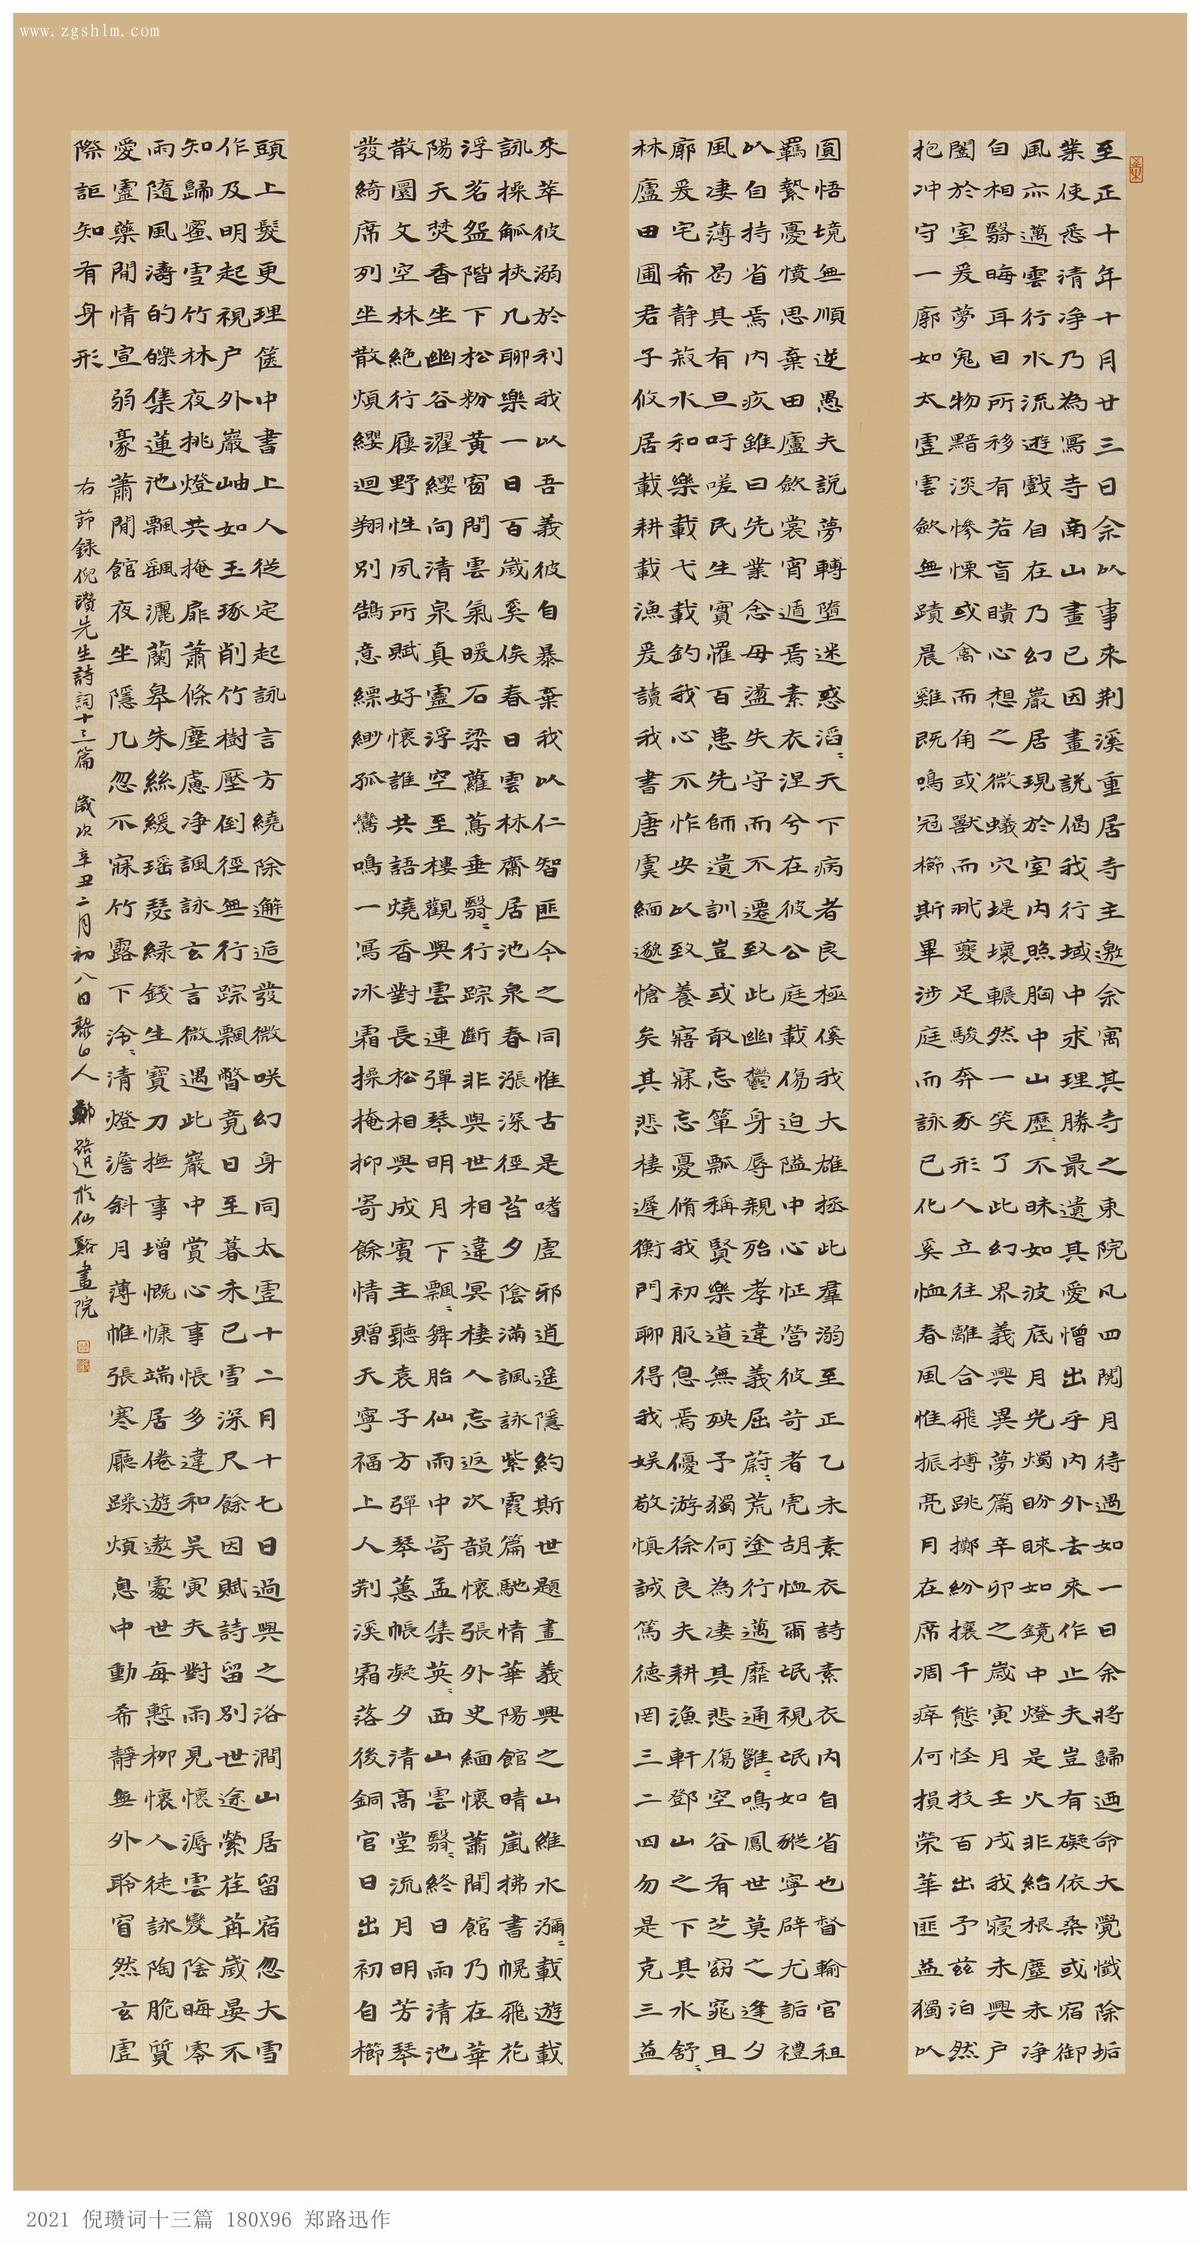 www.zgshlm.com
至正十年十月廿三日余以事來荆溪重居寺主邀余寓其寺之東院凡四閱月待遇如一日余將歸迺命大覺懺除垢
業使悉清净乃為寫寺南山畫已因畫説偈我行域中求理勝最遺其愛憎出乎内外去來作止夫豈有礙依桑或宿御
風亦邁雲行水流遊戲自在乃幻巖居現於室内照胸中山歷〻不昧如波底月光燭盼睞如鏡中燈是火非紿根塵未净
自相翳晦耳目所移有若盲瞶心想之微蟻穴堤壞輾然一笑了此幻界義興異夢篇辛卯之歲寅月壬戌我寢未興户
闔於室爰夢鬼物黯淡慘慄或禽而角或獸而羽夔足駿奔豕形人立往離合飛搏跳擲紛攘千態怪技百出予兹泊然
抱冲守一廓如太虛雲斂無蹟晨雞既鳴冠櫛斯畢涉庭而詠已化奚恤春風惟振亮月在席凋瘁何損榮華匪益獨以
圓悟境無順逆愚夫説夢轉墮迷惑滔〻天下病者良極傒我大雄拯此羣溺至正乙未素衣詩素衣内自省也督輸官租
羈縶憂憤思棄田廬斂裳宵遁焉素衣涅兮在彼公庭載傷迫隘中心怔營彼苛者虎胡恤爾氓視氓如豵寧辟尤詬禮
以自持省焉内疚雖曰先業念母盪失守而不遷致此幽鬱身辱親殆孝違義屈蔚〻荒塗行邁靡通雝〻鳴鳳世莫之逢夕
風凄薄曷其有旦吁嗟民生實罹百患先師遺訓豈或敢忘簞瓢稱賢樂道無殃予獨何為凄其悲傷空谷有芝窈窕且
廓爰宅希静菽水和樂載弋載釣我心不怍安以致養寤寐忘憂脩我初服息焉優游徐良夫耕漁軒鄧山之下其水舒〻
林廬田圃君子攸居載耕載漁爰讀我書唐虞緬邈愴矣其悲棲遲衡門聊得我娱敬慎誠篤德罔三二四勿是克三益
來萃彼溺於利我以吾義彼自暴棄我以仁智匪今之同惟古是嗜虛邪逍遥隱約斯世題畫義興之山維水瀰〻載遊載
詠操觚挾几聊樂一日百歲奚俟春日雲林齋居池泉春漲深徑苔夕陰滿諷詠紫霞篇馳情華陽館晴嵐拂書幌飛花
浮茗盌階下松粉黄窗間雲氣暖石梁蘿蔦垂翳〻行踪斷非與世相違冥棲人忘返次韻懷張外史緬懷蕭閒館乃在華
陽天焚香坐幽谷濯纓向清泉真靈浮空至樓觀與雲連彈琴明月下飄〻舞胎仙雨中寄孟集英〻西山雲翳〻終日雨清池
散圓文空林絶行屨野性夙所賦好懷誰共語燒香對長松相與成賓主聽袁子方彈琴蕙帳凝夕清高堂流月明芳琴
發綺席列坐散煩纓迴翔别鵠意縹緲孤鸞鳴一寫冰霜操掩抑寄餘情贈天寧福上人荆溪霜落後銅官日出初自櫛
頭上髮更理篋中書上人從定起詠言方繞除邂逅發微咲幻身同太虛十二月十七日過與之洛澗山居留宿忽大雪
作及明起視户外巖岫如玉琢削竹樹壓倒徑無行踪飄瞥竟日至暮未已雪深尺餘因賦詩留别世途縈荏苒歲晏不
知歸蜜雪竹林夜挑燈共掩扉蕭條塵慮净諷詠玄言微遇此巖中賞心事悵多違和吴寅夫對雨見懷溽雲變陰晦零
雨隨風濤的皪集蓮池飄飄灑蘭皋朱絲緩瑶瑟緑錢生寶刀撫事增慨慷端居倦遊遨處世每慙柳懷人徒詠陶脆質
愛靈藥閒情宣弱豪蕭閒館夜坐隱几忽不寐竹露下泠〻清燈澹斜月薄帷張寒廳躁煩息中動希静無外聆窅然玄虛
際詎知有身形
右節録倪瓚先生詩詞十三篇 歲次辛丑二月初八日黟山人鄭路迅於仙谿畫院
2021 倪瓒词十三篇 180X96 郑路迅作